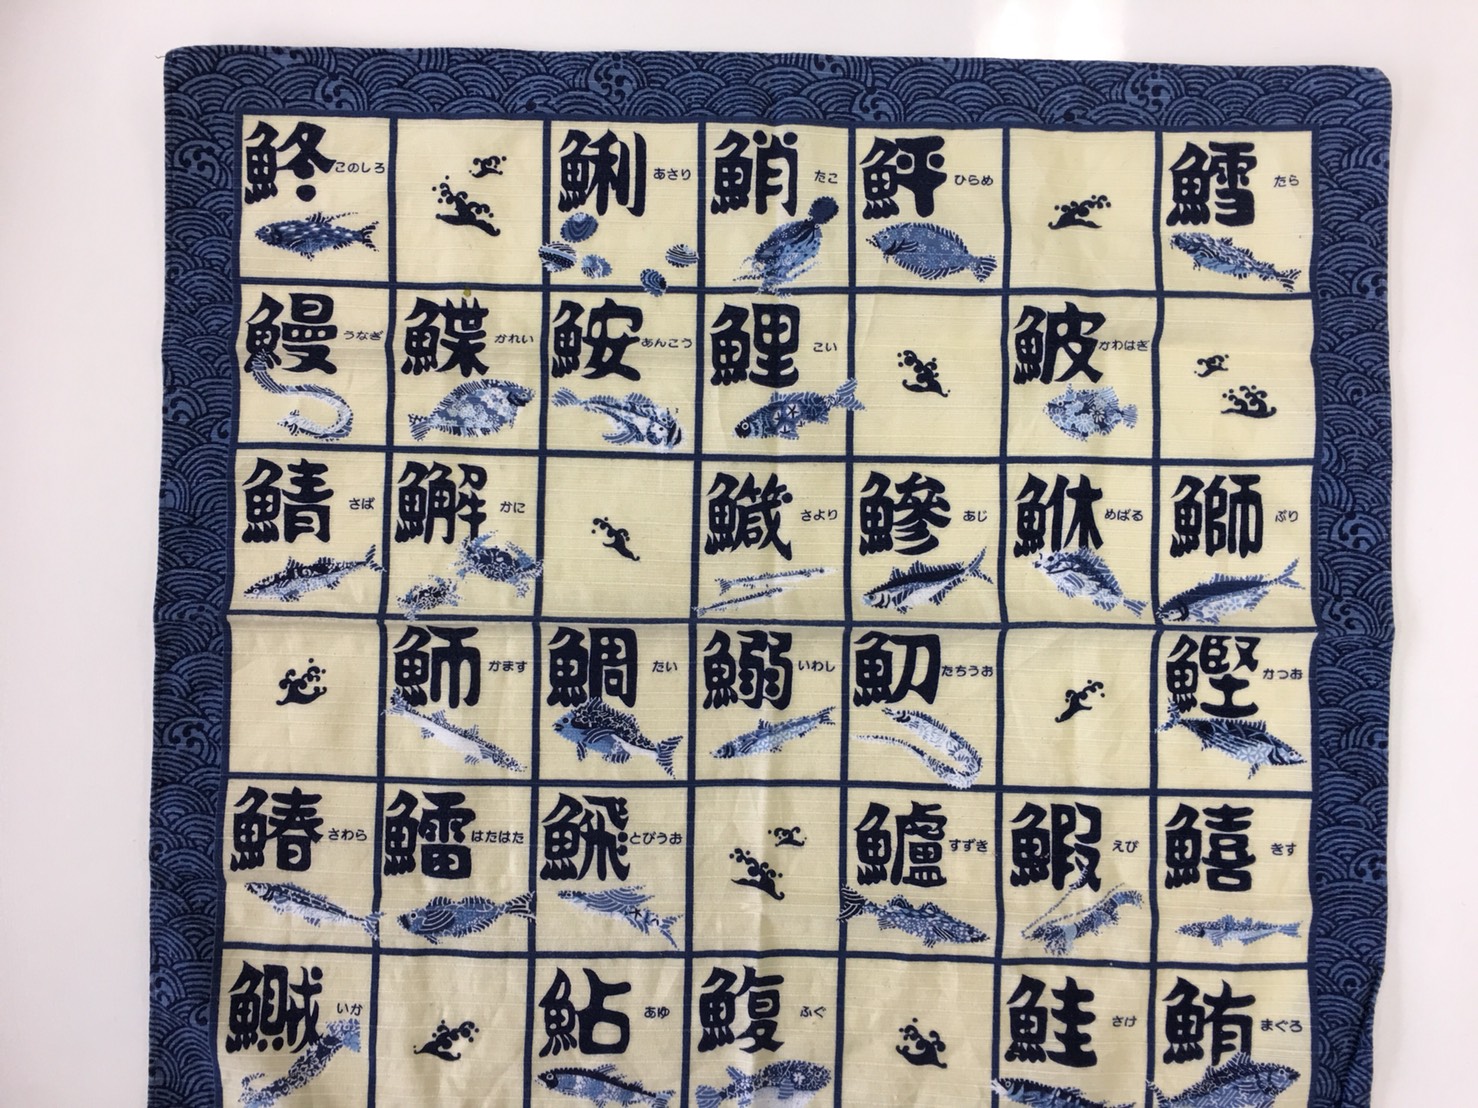 鮗 このしろ
鯏 あさり
鮹 たこ
鮃 ひらめ
鱈 たら
鰻 うなぎ
鰈 かれい
鮟 あんこう
鯉 こい
鮍 かわはぎ
鯖 さば
鱰 かに
鱵 さより
鰺 あじ
鮴 めばる
鰤 ぶり
魳 かます
鯛 たい
鰯 いわし
魛 たちうお
鰹 かつお
鰆 さわら
鱩 はたはた
鯡 とびうお
鱸 すずき
鰕 えび
鱚 きす
鰂 いか
鮎 あゆ
鰒 ふぐ
鮭 さけ
鮪 まぐろ